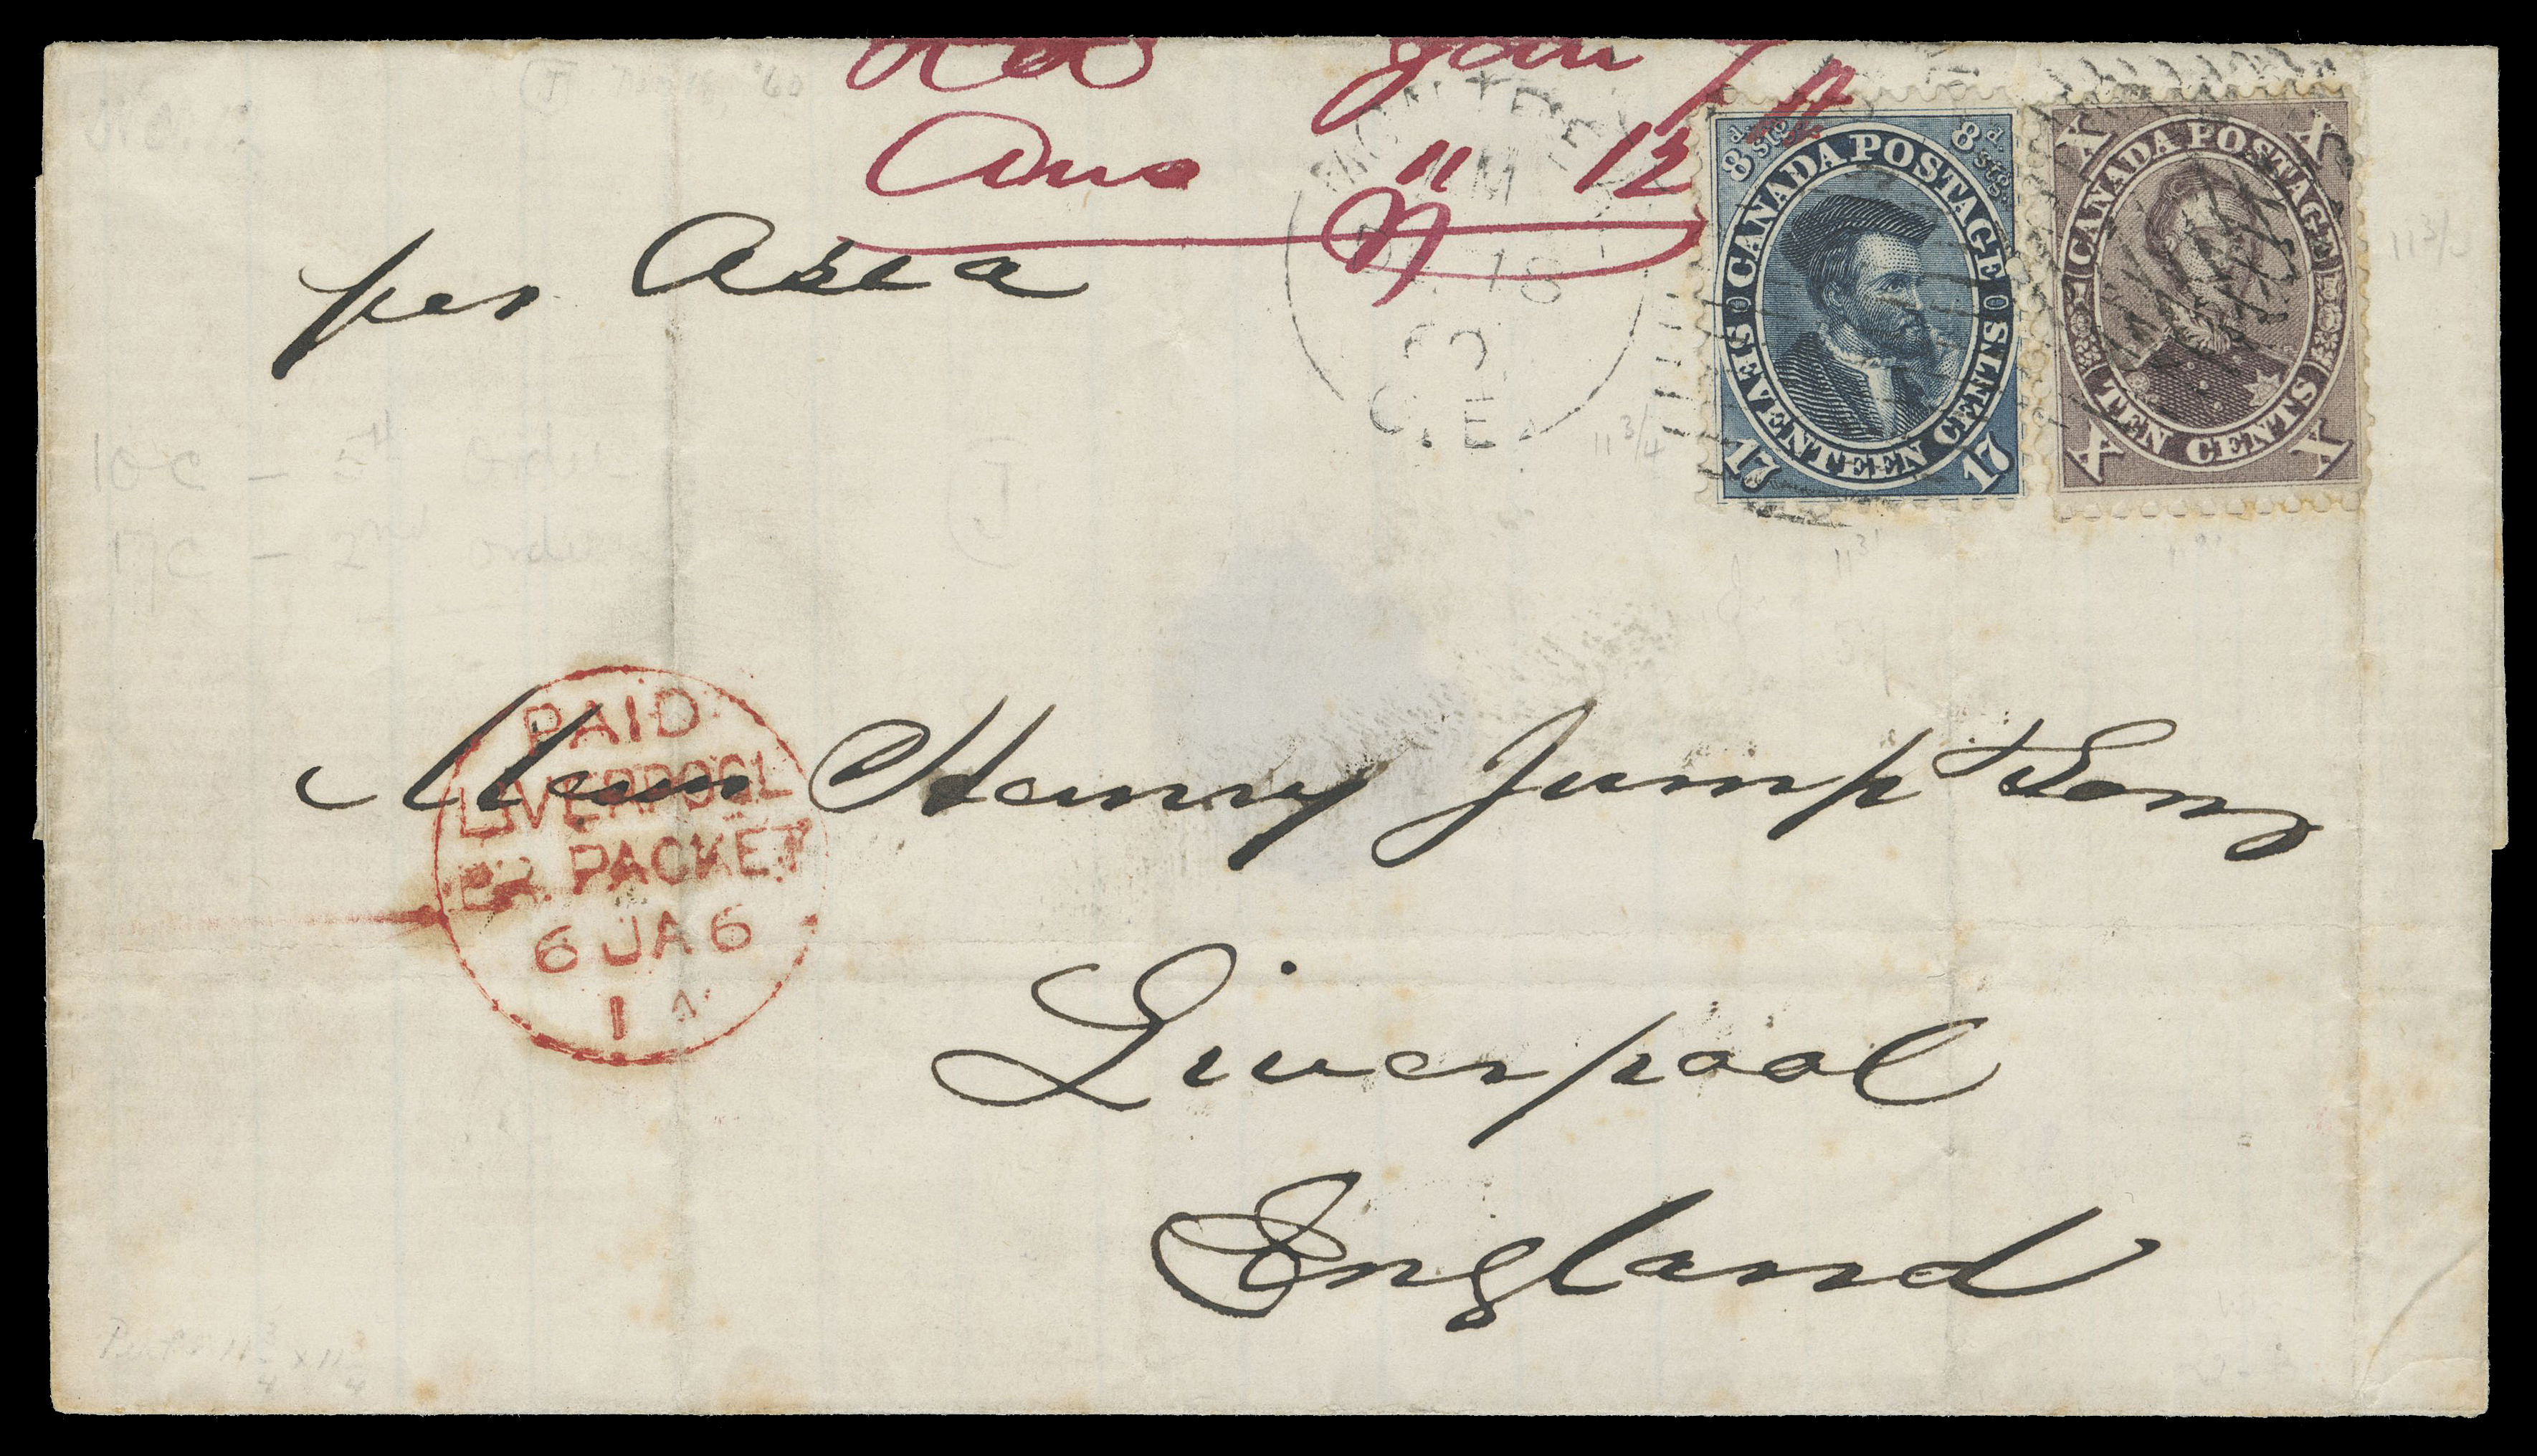 Jan 7
Ans " 12
per Asia
MONTREAL
AM
DE 18
60
C.E.
8d stg
8d stg.
CANADA POSTAGE
SEVENTEEN CENTS
17 17
X X
CANADA POSTAGE
TEN CENTS
X X
11 3/4
11 3/4
10c - 5th Order
17c - 2nd order
PAID
LIVERPOOL
BR. PACKET
6 JA 6
1 A
Messrs Henry Jump & Sons
Liverpool
England
Perf 11 3/4 x 11 3/4